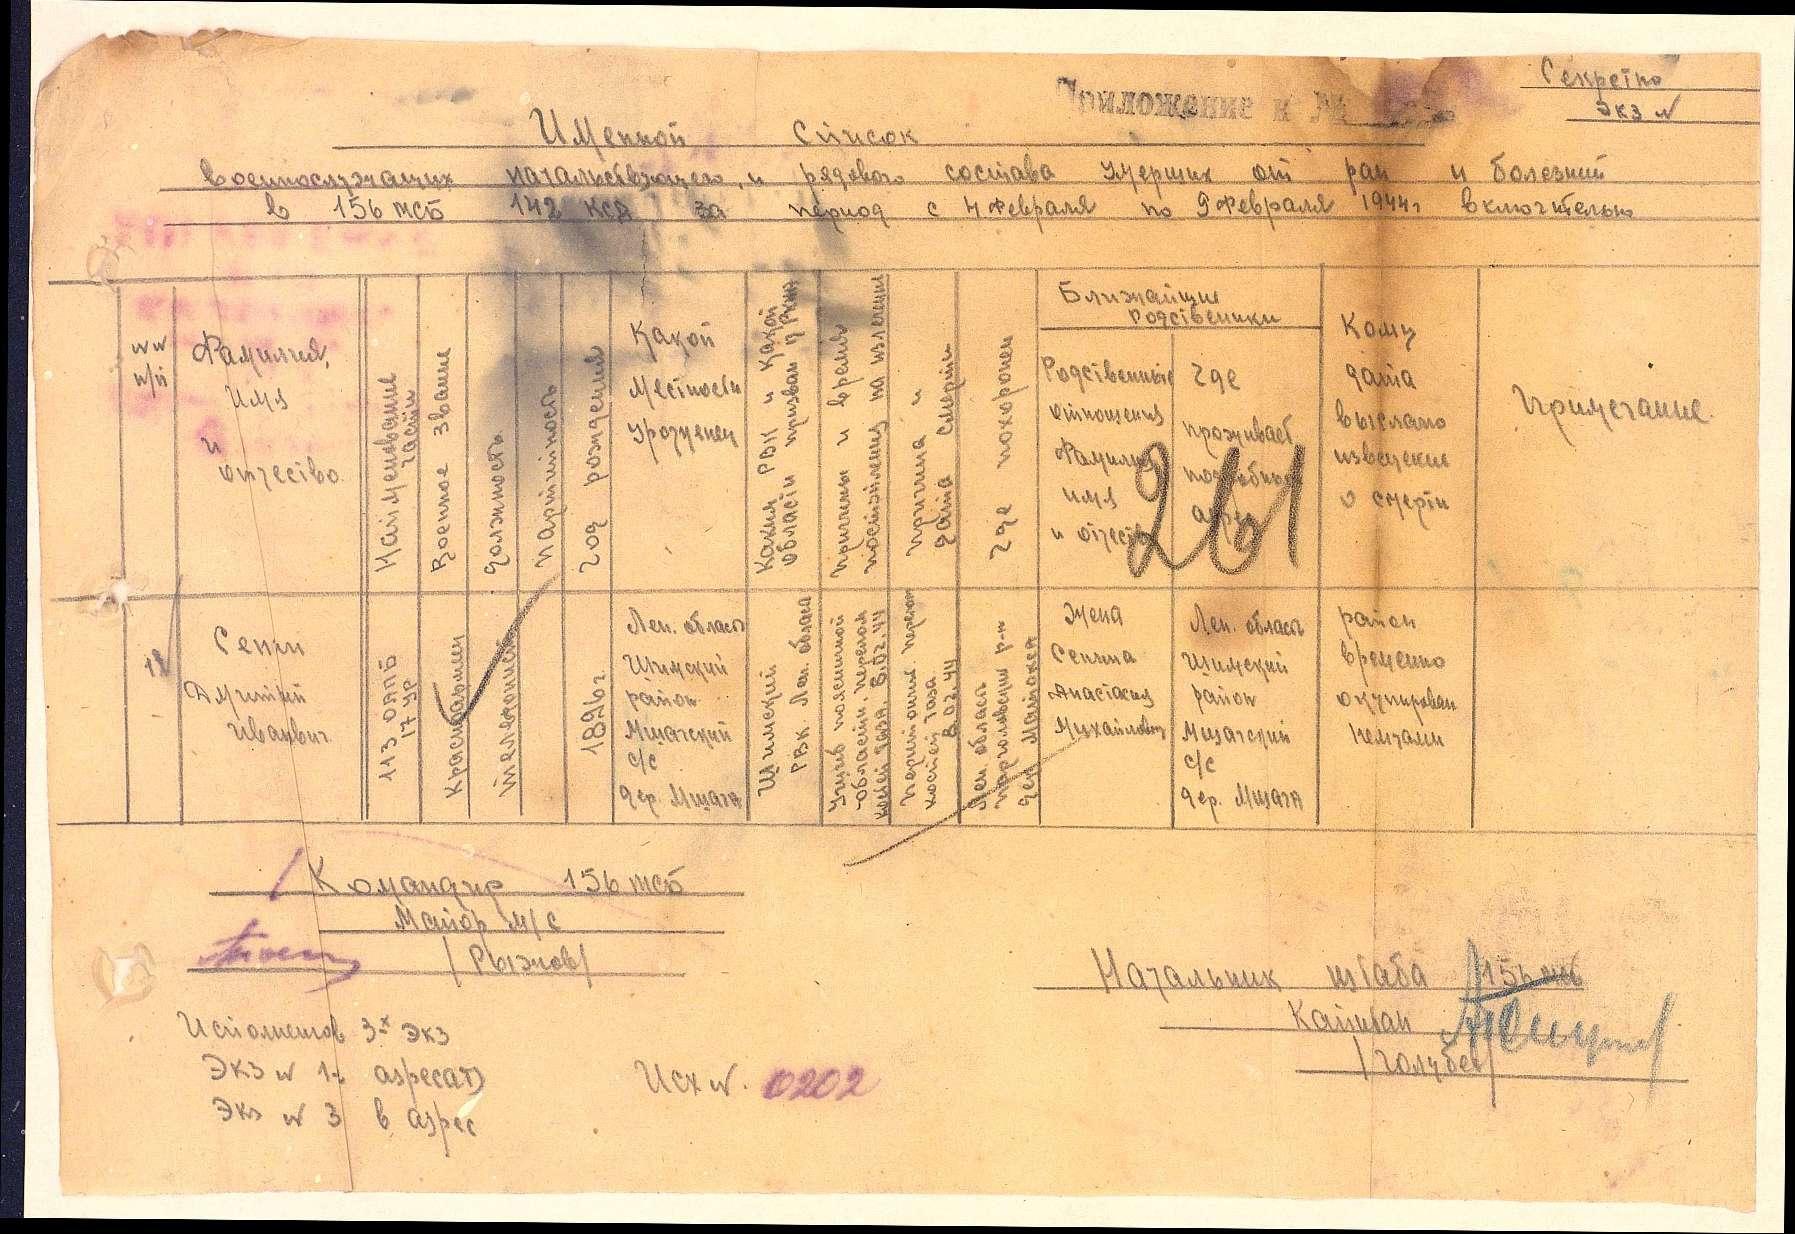 Секретно
Экз №
Приложение к №
Именной Список
военнослужащих начальствующего, и рядового состава умерших от ран и болезний
в 156 МСБ 142 КСД за период с 4 Февраля по 9 Февраля 1944г включительно
№№ п/п
Фамилия, Имя и отчество
Наименование части
Военное звание
должность
партийность
год рождения
Какой местности уроженец
Каким РВК и какой области призван в РККА
причины и время поступления на излечение
причина и дата смерти
где похоронен
Ближайщие родственики
Родственные отношения Фамилия имя и отчество
где проживает подробный адрес
Кому дата выслано извещение о смерти
примечание.
261
Сенин Дмитрий Иванович
113 ОАПБ 17 УР
Красноармеец
телефонист
1896 г.
Лен. область Шимский район Мшагский с/с дер. Мшага
Шимский РВК. Лен. област
Ушиб поясничной области. перелом костей таза. 8.02.44
перитонит. перелом костей таза. 8.02.44
Лен. область парголовский р-н дер. Майонен
Жена Сенина Анастасия Михайловна
Лен. область Шимский район Мшагский с/с дер. Мшага
район временно окупирован немцами
Командир 156 МСБ
Майор м/с
/Рыжов/
Начальник штаба 156 мсб
Капитан
/Голубев/
Исполнетов 3х экз
Экз № 1-2 адресату
Экз № 3 в адрес
Исх №. 0202